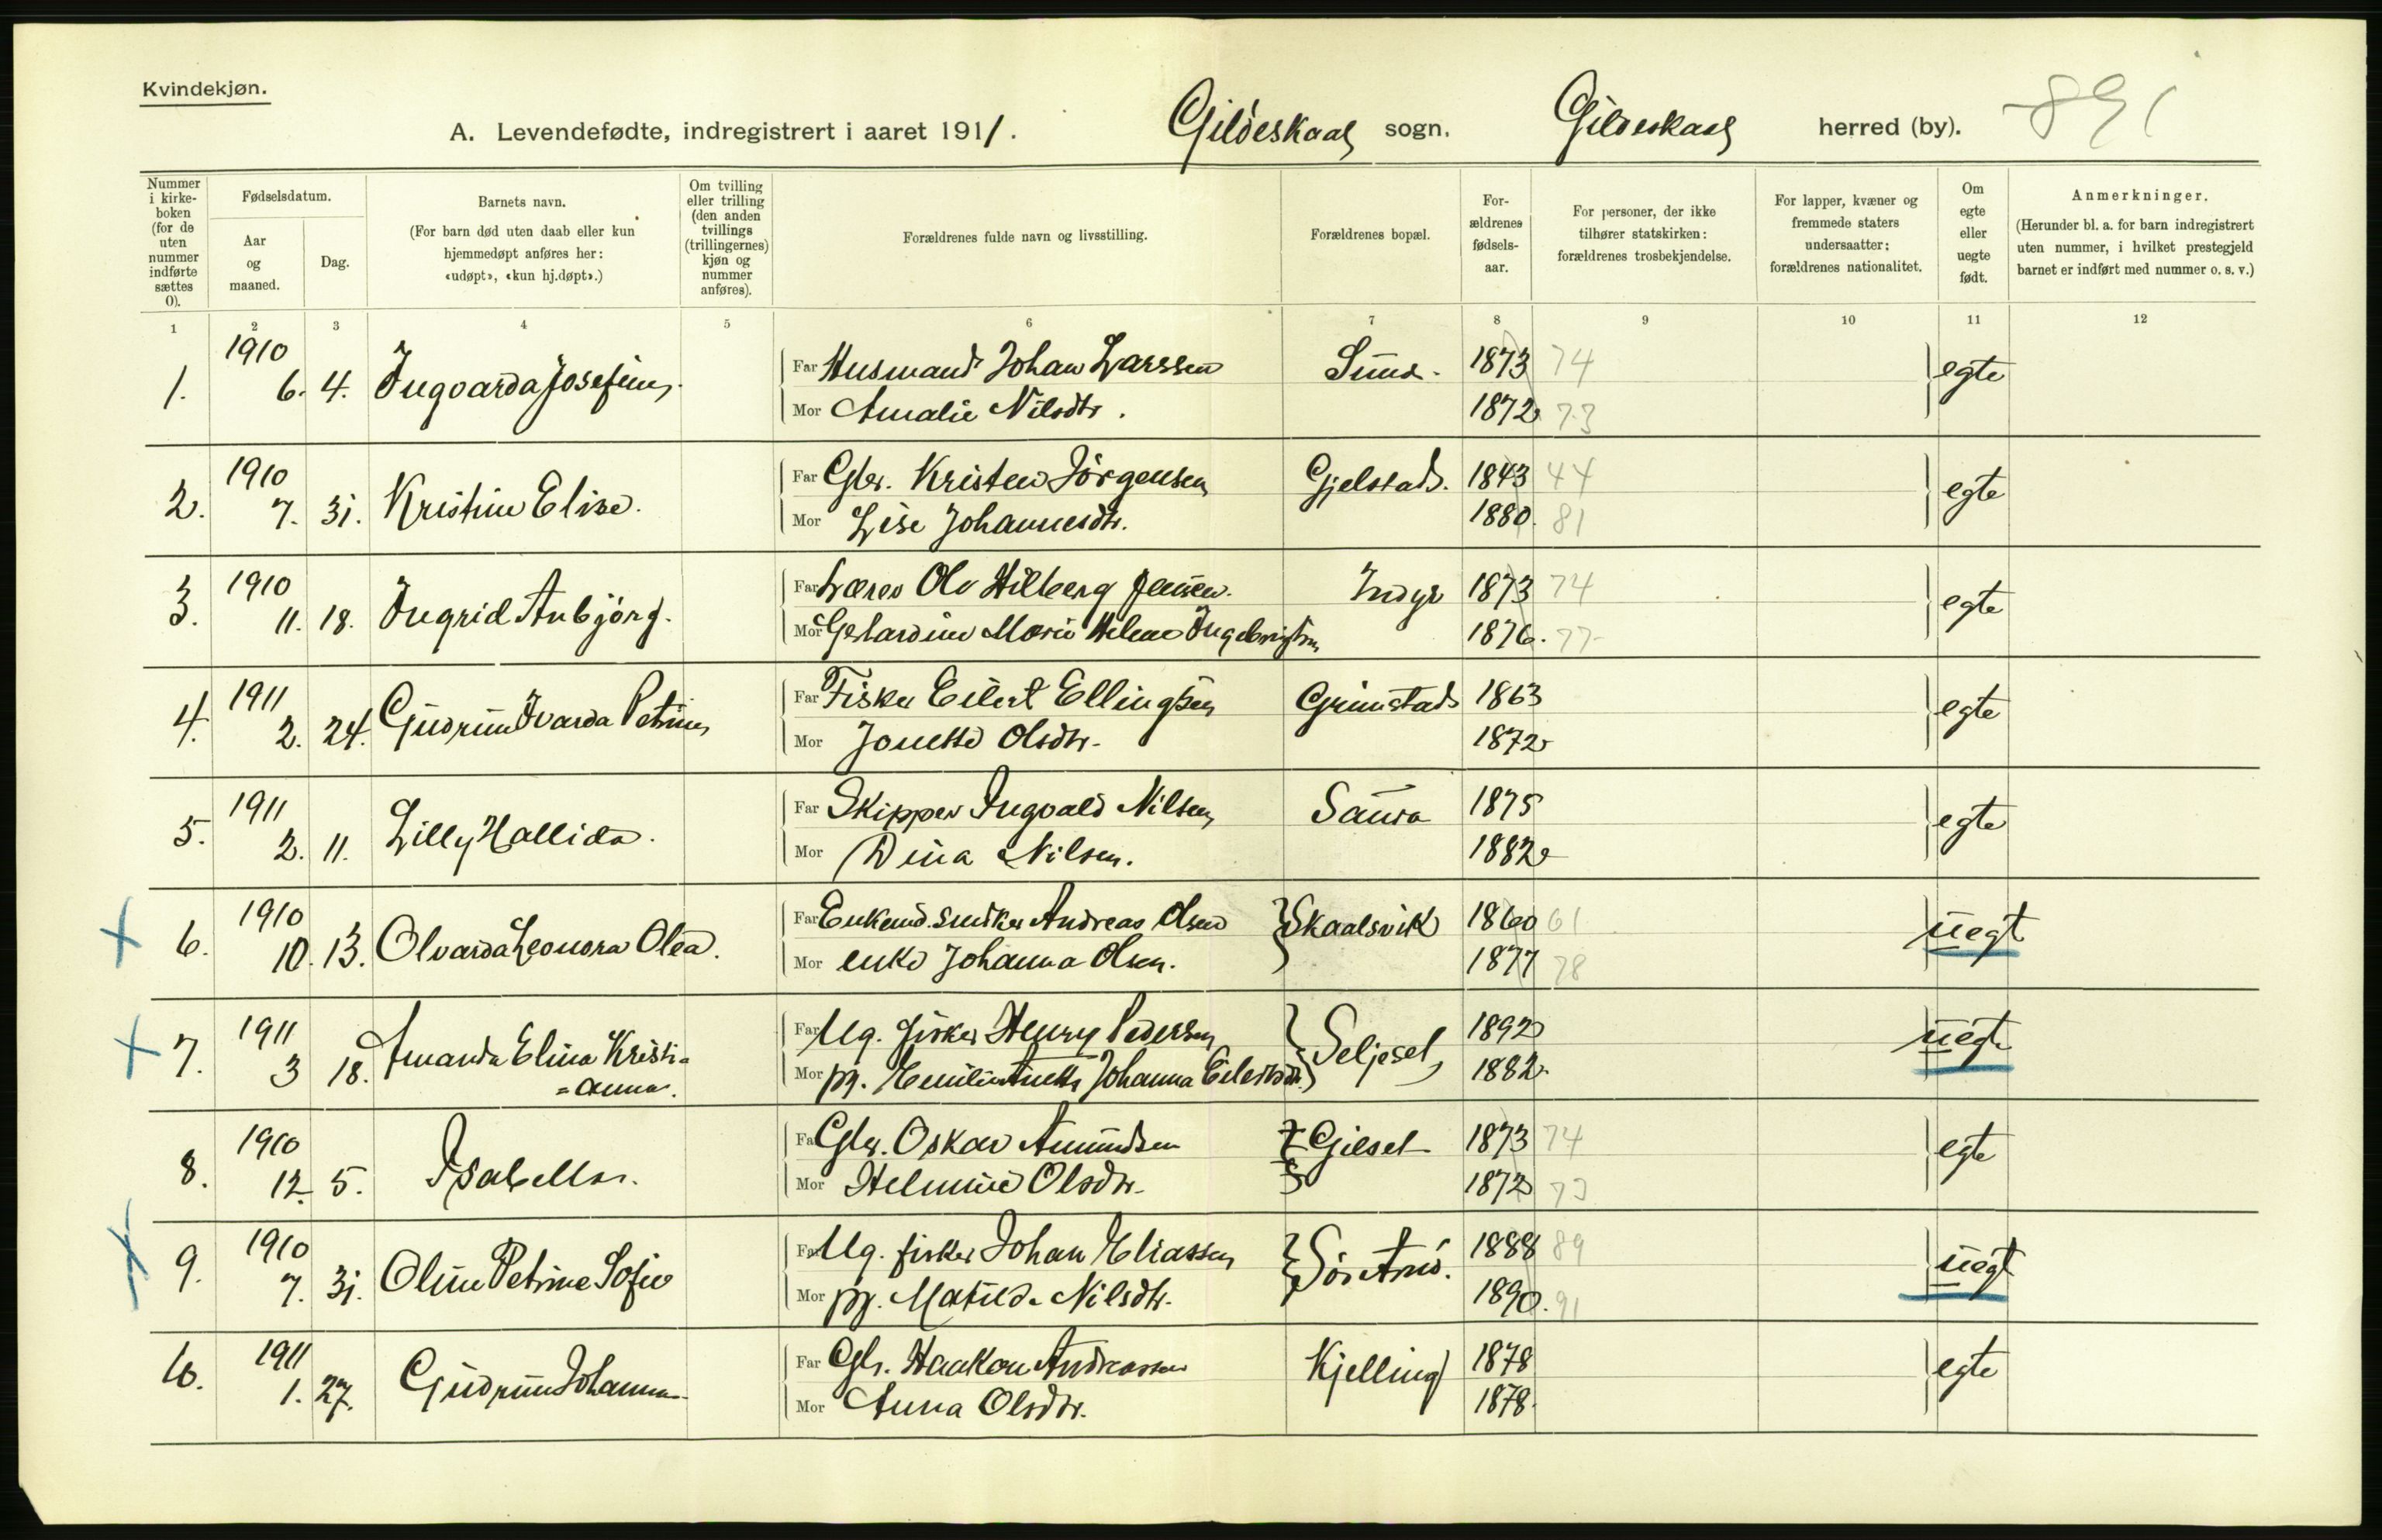 Kvindekjøn.
A. Levendefødte, indregistrert i aaret 1911. Gildeskaal sogn. Gildeskaal herred (by). 891
Nummer i kirke-boken (for de uten nummer indførte sættes 0).
Fødselsdatum.
Aar og maaned.
Dag.
Barnets navn.
(For barn død uten daab eller kun hjemmedøpt anføres her: «udøpt», «kun hj.døpt».)
Om tvilling eller trilling (den anden tvillings (trillingernes) kjøn og nummer anføres).
Forældrenes fulde navn og livsstilling.
Forældrenes bopæl.
For-ældrenes fødsels-aar.
For personer, der ikke tilhører statskirken: forældrenes trosbekjendelse.
For lapper, kvæner og fremmede staters undersaatter; forældrenes nationalitet.
Om egte eller uegte født.
Anmerkninger.
(Herunder bl. a. for barn indregistrert uten nummer, i hvilket prestegjeld barnet er indført med nummer o. s. v.)
1 2 3 4 5 6 7 8 9 10 11 12
1. 1910 6. 4. Ingvarda Josefine. Far Husmand Johan Larssen Sund. 1873 74 egte
Mor Amalie Nilsdtr. 1872 73
2. 1910 7. 31. Kristine Elise. Far Gbr. Kristen Jörgensen Gjelstad. 1843 44 egte
Mor Lise Johannesdtr. 1880. 81
3. 1910 11. 18. Ingrid Anbjörg. Far Lærer Ole Hilberg Jensen. Indyr 1873 74 egte
Mor Gerhardine Marie Helene Ingebrigtsen 1876. 77
4. 1911 2. 24. Gudrun Ivarda Petrine Far Fisker Eilert Ellingsen Grimstad 1863 egte
Mor Jonette Olsdtr. 1872
5. 1911 2. 11. Lilly Hallida. Far Skipper Ingvald Nilsen Saura 1875 egte
Mor Dina Nilsen. 1882
6. 1910 10. 13. Olvarda Leonora Olea. Far Enkemd. Andreas Olsen Skaalsvik 1860 61 uegt
Mor enke Johanna Olsen. 1877 78
7. 1911 3 18. Amanda Elina Kristi=
=anna. Far Ug. fisker Henry Pedersen Seljeset 1892 uegt
Mor pg. Emilie Anette Johanna Eilertsdtr. 1882.
8. 1910 12. 5. Isabella. Far Gbr. Oskar Amundsen Gjeset 1873 74 egte
Mor Helmine Olsdtr. 1872 73
9. 1910 7. 31. Oline Petrine Sofie Far Ug. fisker Johan Eliassen Sör Arnö. 1888 89 uegt
Mor pg. Matilde Nilsdtr. 1890. 91
10. 1911 1. 27. Gudrun Johanna Far Gbr. Haakon Andreassen Kjelling 1878 egte
Mor Anna Olsdtr. 1878.